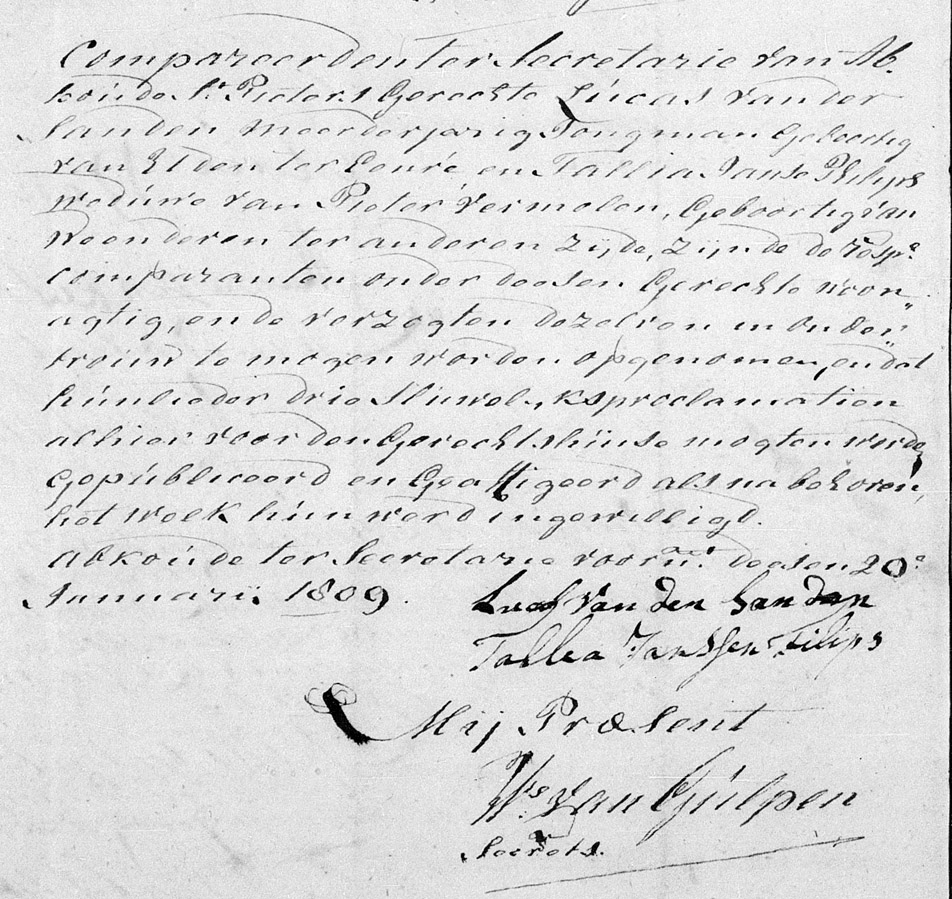 Compareerden ter Secretarie van Ab-
koúde St. Pieters Gerechte Lúcas van der
Sanden Meerderjarig Jongman Geboortig
van Elden ter Eenre, en Tallia Janse Philips
weduwe van Pieter Vermolen, Geboortig van
ter anderen Zijde, zijnde de resp.e
comparanten onder deesen Gerechte woon-
agtig, ende verzogten dezelven in Onder-
troúw te mogen worden opgenomen, en dat
húnlieder drie Húwelyksproclamatien
alhier voor den Gerechtshúise mogten worden
Gepúbliceerd en Geaffigeerd als na behoren,
het welk hún werd ingewilligd.
Abkoúde ter Secretarie voorn.t deesen 20e
Januarij 1809.
Lucas van den Sanden
Tallea Janssen Filips
Mij Præsent
Ws. van Gúlpen
Secrets.